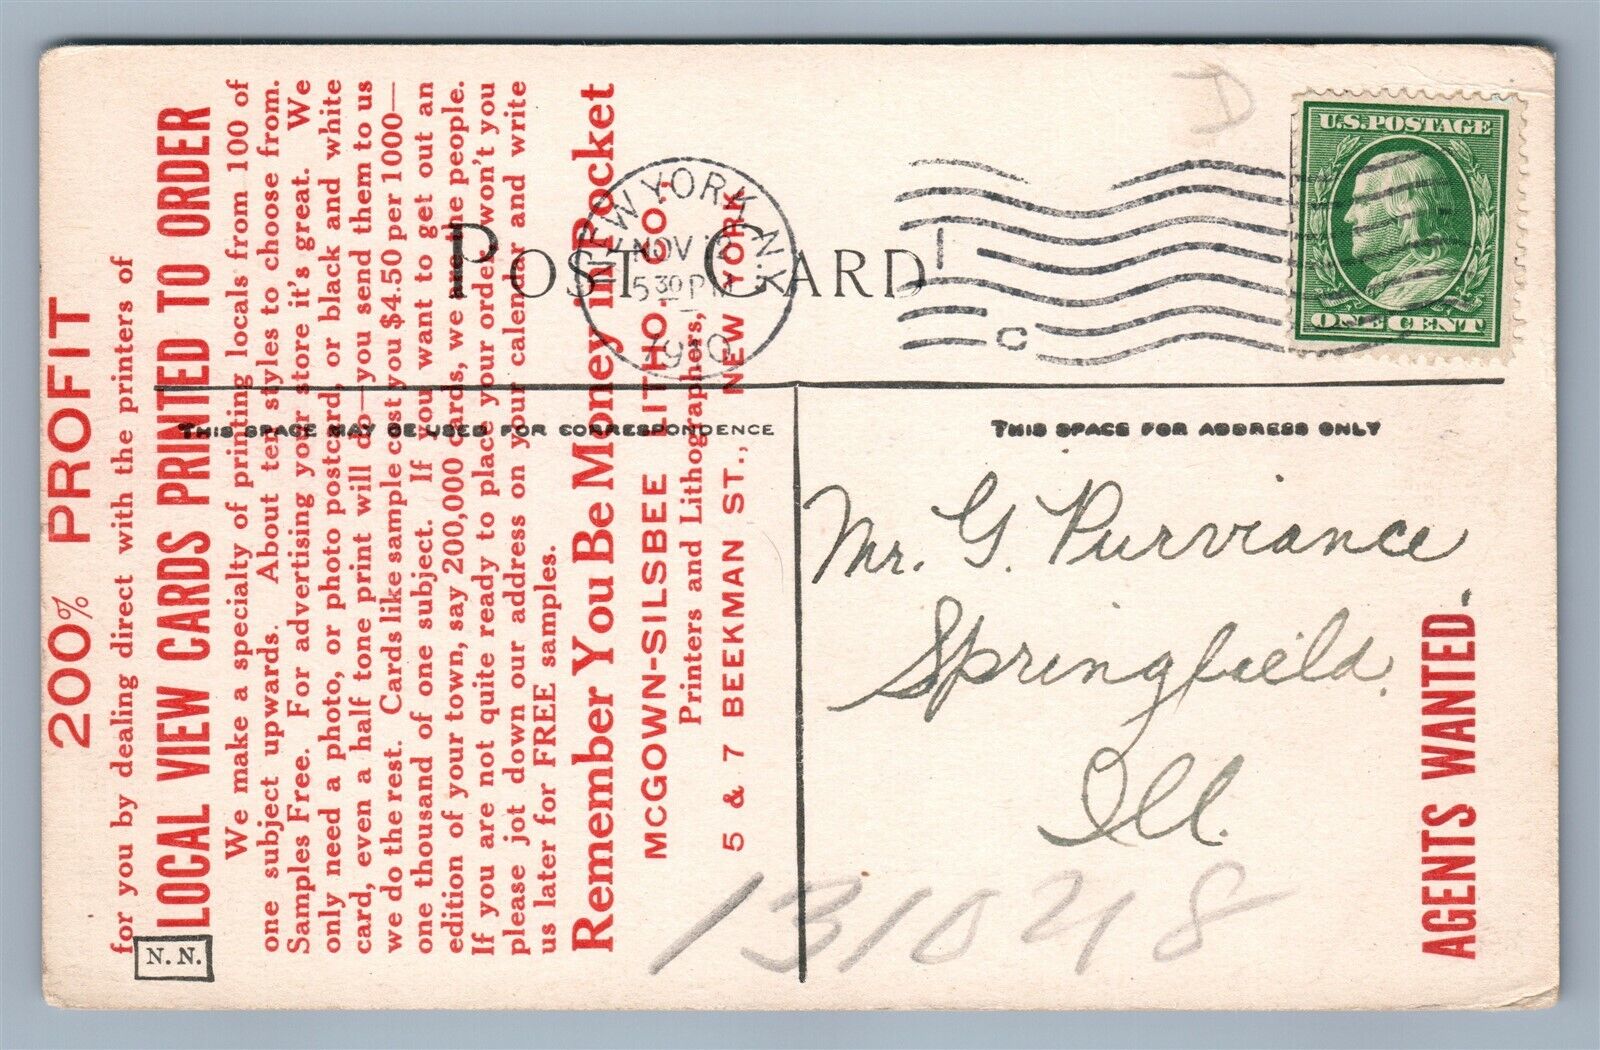 200% PROFIT
for you by dealing direct with the printers of
LOCAL VIEW CARDS PRINTED TO ORDER
We make a specialty of printing locals from 100 of
one subject upwards. About ten styles to choose from.
Samples Free. For advertising your store it's great. We
only need a photo, or photo postcard, or black and white
card, even a half tone print will do—you send them to us
we do the rest. Cards like sample cost you $4.50 per 1000—
one thousand of one subject. If you want to get out an
edition of your town, say 200,000 cards, we are the people.
If you are not quite ready to place your order won't you
please jot down our address on your calendar and write
us later for FREE samples.
Remember You Be Money in Pocket
MCGOWN-SILSBEE LITHO. CO.,
Printers and Lithographers,
5 & 7 BEEKMAN ST., NEW YORK
N. N.
POST CARD
NEW YORK, N.Y.
NOV 12
5 30 PM
1910
C
D
U.S. POSTAGE
ONE CENT
THIS SPACE MAY BE USED FOR CORRESPONDENCE
THIS SPACE FOR ADDRESS ONLY
Mr. G. Purviance
Springfield,
Ill.
131048
AGENTS WANTED.